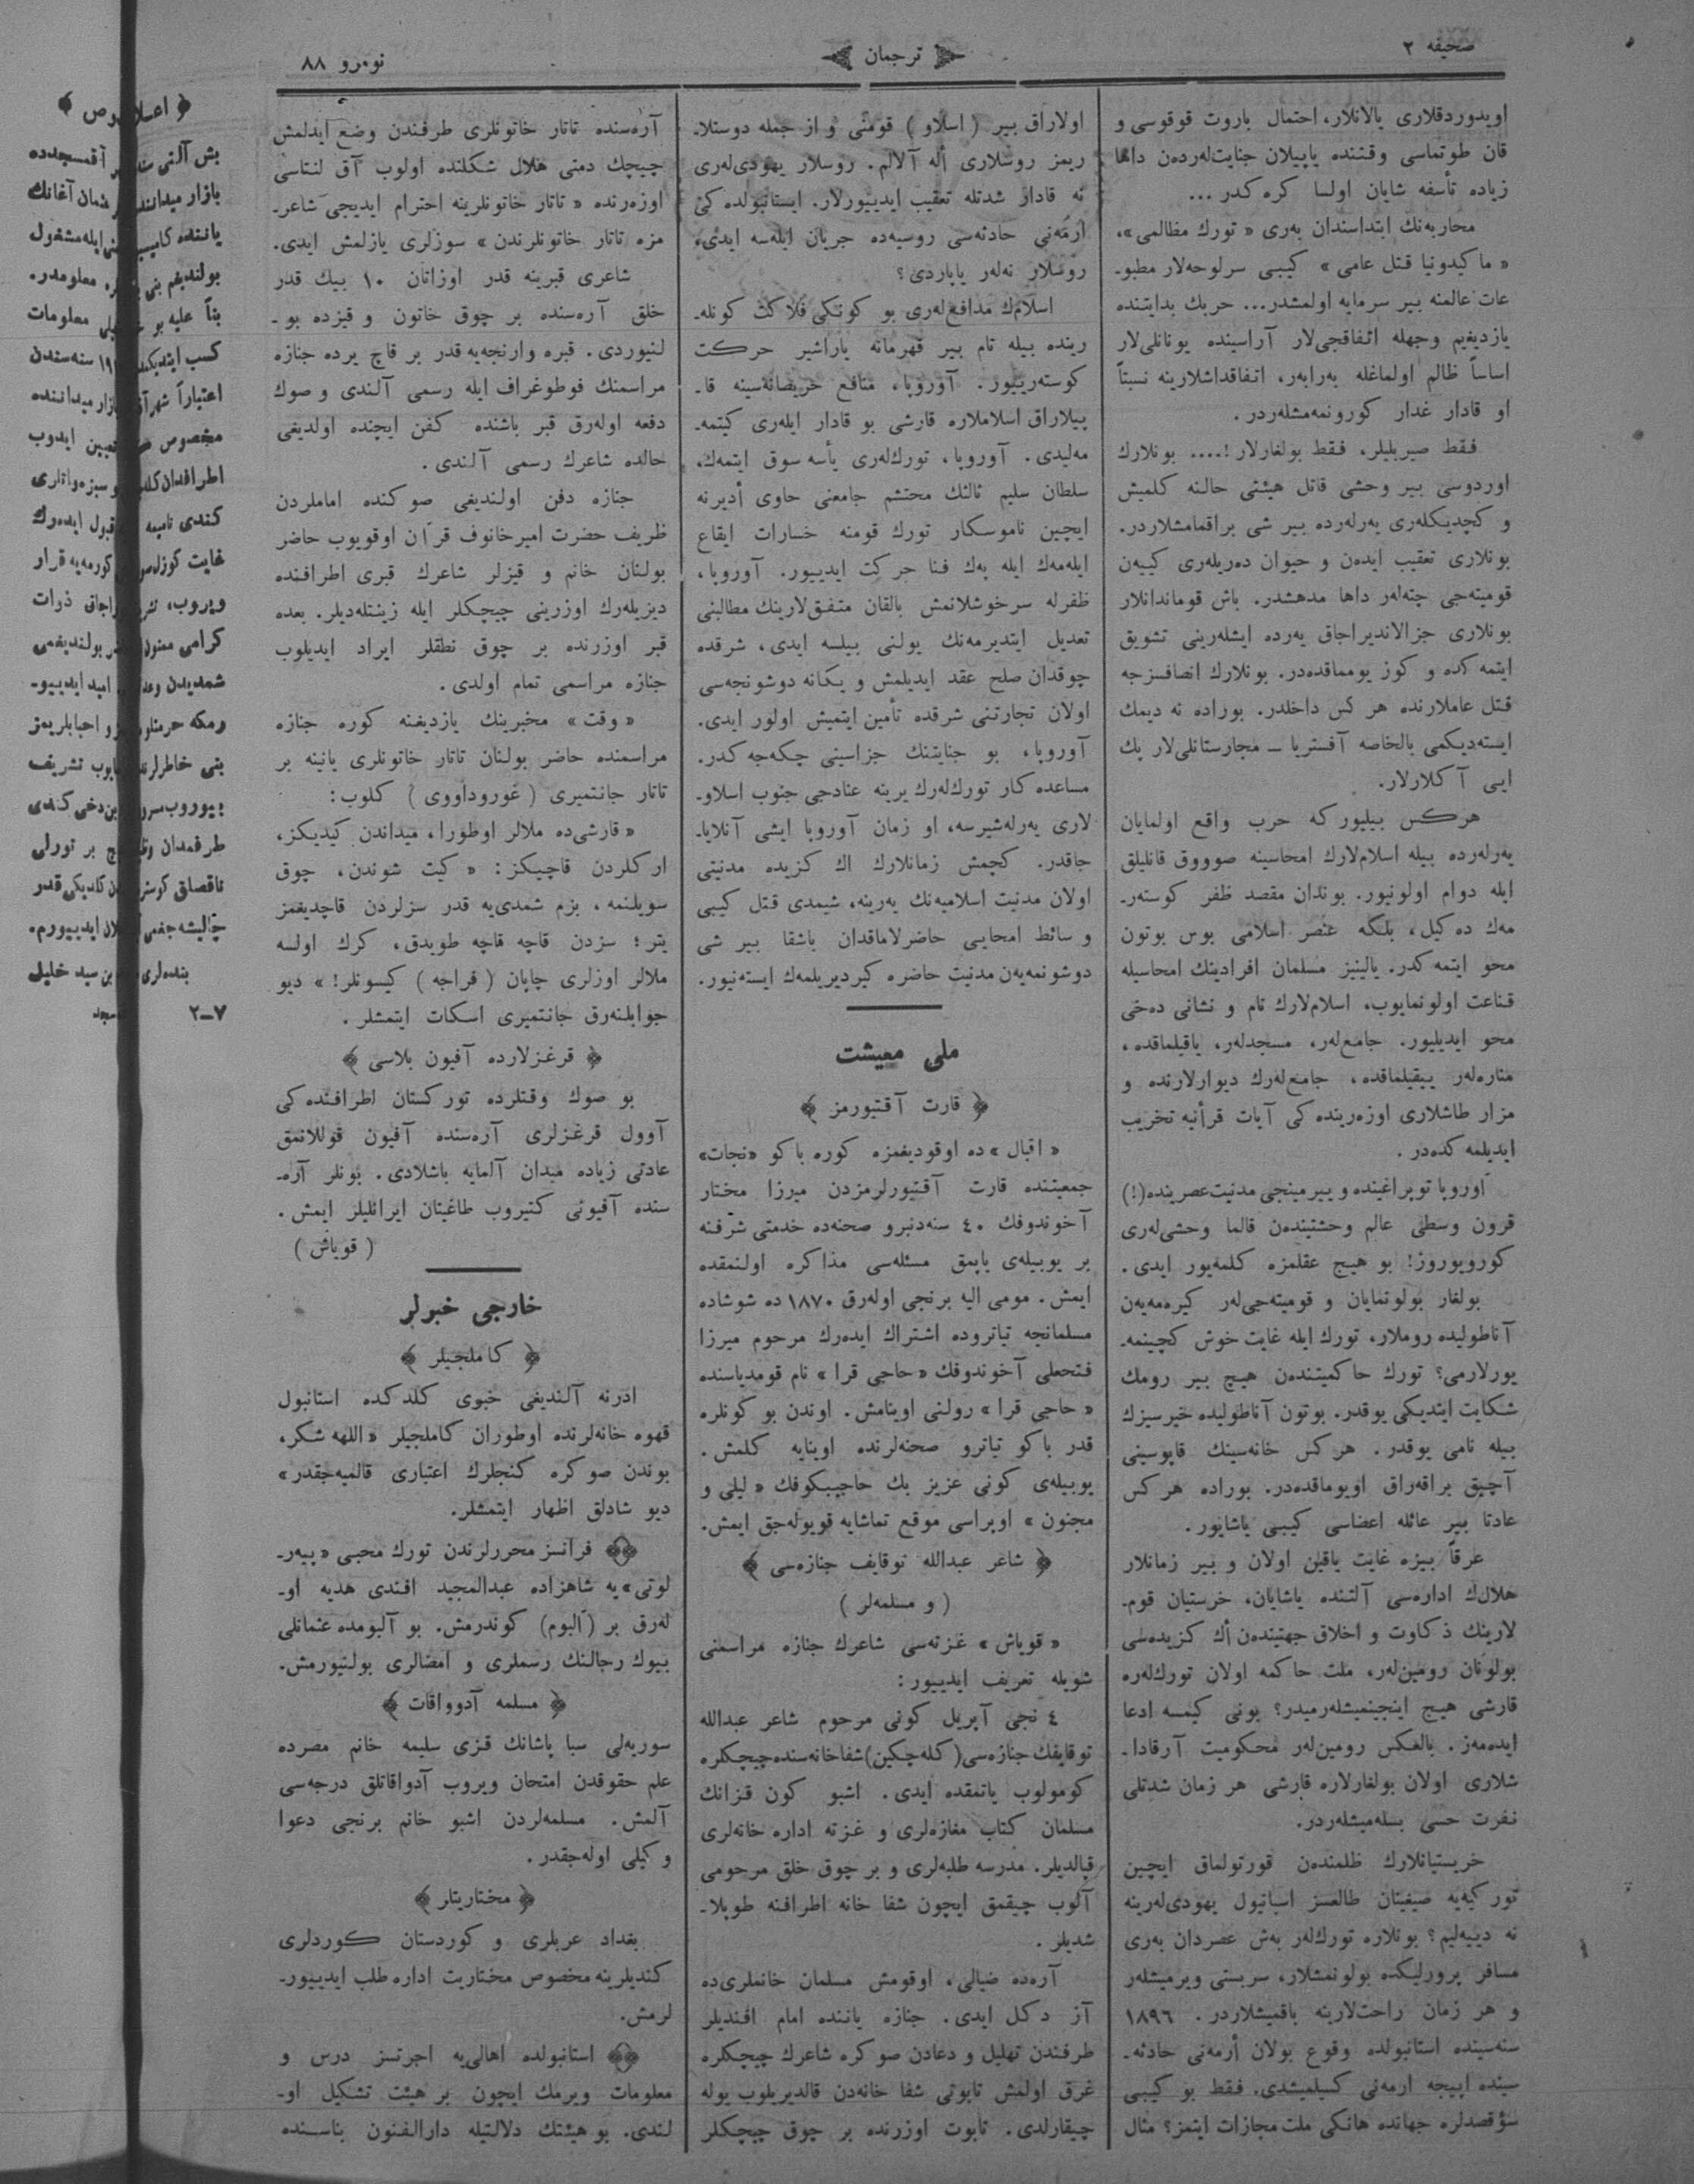 صحیفه ٢
ترجمان
نومرو ٨٨
اویدوردقلاری یالانلار، احتمال باروت قوقوسی و
قان طوتماسی وقتنده یاپیلان جنایت‌له‌رده‌ن داها
زیاده تأسفه شایان اولسا كره كدر ...
محاربه‌نك ابتداسندان به‌ری « تورك مظالمی »،
« ما كیدونیا قتل عامی » كیبی سرلوحه‌لار مطبو-
عات عالمنه بیر سرمایه اولمشدر... حربك بدایتنده
یازدیغیم وجهله اتفاقجی‌لار آراسینده یونانلی‌لار
اساساً ظالم اولماغله به‌رابه‌ر، اتفاقداشلارینه نسبتاً
او قادار غدار كورونمه‌مشله‌ردر.
فقط صیربلیلر، فقط بولغارلار!.... بونلارك
اوردوسی بیر وحشی قاتل هیئتی حالنه كلمیش
و كچدیكله‌ری یه‌رله‌رده بیر شی براقمامشلاردر.
بونلاری تعقیب ایده‌ن و حیوان ده‌ریله‌ری كییه‌ن
قومیته‌جی چته‌له‌ر داها مدهشدر. باش قوماندانلار
بونلاری جزالاندیراجاق یه‌رده ایشله‌رینی تشویق
ایتمه كده و كوز یومماقده‌در. بونلارك انصافسزجه
قتل عاملارنده هر كس داخلدر. بوراده نه دیمك
ایسته‌دیكمی بالخاصه آفستریا ــ مجارستانلی‌لار پك
ایی آ كلارلار.
هركس بیلیور كه حرب واقع اولمایان
یه‌رله‌رده بیله اسلام‌لارك امحاسینه صوووق قانلیلق
ایله دوام اولونیور. بوندان مقصد ظفر كوسته‌ر-
مه‌ك ده كیل، بلكه عنصر اسلامی بوس بوتون
محو ایتمه كدر. یالینیز مسلمان افرادینك امحاسیله
قناعت اولونمایوب، اسلام‌لارك نام و نشانی ده‌خی
محو ایدیلیور. جامع‌له‌ر، مسجدله‌ر، یاقیلماقده،
مناره‌له‌ر ییقیلماقده، جامع‌له‌رك دیوارلارنده و
مزار طاشلاری اوزه‌رینده كی آیات قرآنیه تخریب
ایدیلمه كده‌در .
اوروپا توپراغینده و ییرمینجی مدنیت عصرینده(!)
قرون وسطی عالم وحشتینده‌ن قالما وحشی‌له‌ری
كورویوروز! بو هیچ عقلمزه كلمه‌یور ایدی.
بولغار بولونمایان و قومیته‌جی‌له‌ر كیره‌مه‌یه‌ن
آناطولیده روملار، تورك ایله غایت خوش كچینمه-
یورلارمی؟ تورك حاكمیتنده‌ن هیچ بیر رومك
شكایت ایتدیكی یوقدر. بوتون آناطولیده خیرسیزك
بیله نامی یوقدر. هركس خانه‌سینك قاپوسینی
آچیق براقه‌راق اویوماقده‌در. بوراده هركس
عادتا بیر عائله اعضاسی كیبی یاشایور.
عرقاً بیزه غایت یاقین اولان و بیر زمانلار
هلال‌ك اداره‌سی آلتنده یاشایان، خرستیان قوم-
لارینك ذكاوت و اخلاق جهتینده‌ن أك كزیده‌سی
بولونان رومین‌له‌ر، ملت حاكمه اولان تورك‌له‌ره
قارشی هیچ اینجینمیشله‌رمیدر؟ بونی كیمسه ادعا
ایده‌مه‌ز. بالعكس رومین‌له‌ر محكومیت آرقادا-
شلاری اولان بولغارلاره قارشی هر زمان شدتلی
نفرت حسی بسله‌میشله‌ردر.
خریستیانلارك ظلمنده‌ن قورتولماق ایچین
توركیه‌یه صیغینان طالعسز اسپانیول یهودی‌له‌رینه
نه دییه‌لیم؟ بونلاره تورك‌له‌ر به‌ش عصردان به‌ری
مسافر پرورلیكده بولونمشلار، سربستی ویرمیشله‌ر
و هر زمان راحت‌لارینه باقمیشلاردر. ١٨٩٦
سنه‌سینده استانبولده وقوع بولان أرمه‌نی حادثه-
سینده اپیجه ارمه‌نی كسیلمیشدی. فقط بو كیبی
سؤقصدلره جهانده هانكی ملت مجازات ایتمز؟ مثال
اولاراق بیر ( اسلاو ) قومنی و از جمله دوستلا-
ریمز روسلاری أله آلالم. روسلار یهودی‌له‌ری
نه قادار شدتله تعقیب ایدییورلار. ایستانبولده كی
ارمه‌نی حادثه‌سی روسیه‌ده جریان ایله‌سه ایدی،
روسلار نه‌له‌ر یاپاردی؟
اسلام‌ك مدافع‌له‌ری بو كونكی فلاكت كونله-
رینده بیله تام بیر قهرمانه یاراشیر حركت
كوسته‌رییور. آوروپا، منافع حریصانه‌سینه قا-
پیلاراق اسلاملاره قارشی بو قادار ایله‌ری كیتمه-
مه‌لیدی. آوروپا، تورك‌له‌ری یأسه سوق ایتمه‌ك،
سلطان سلیم ثالثك محتشم جامعنی حاوی أدیرنه
ایچین ناموسكار تورك قومنه خسارات ایقاع
ایله‌مه‌ك ایله به‌ك فنا حركت ایدییور. آوروپا،
ظفرله سرخوشلانمش بالقان متفق‌لارینك مطالبنی
تعدیل ایتدیرمه‌نك یولنی بیلسه ایدی، شرقده
چوقدان صلح عقد ایدیلمش و یكانه دوشونجه‌سی
اولان تجارتنی شرقده تأمین ایتمیش اولور ایدی.
آوروپا، بو جنایتنك جزاسینی چكه‌جه كدر.
مساعده كار تورك‌له‌رك یرینه عنادجی جنوب اسلاو-
لاری یه‌رله‌شیرسه، او زمان آوروپا ایشی آنلایا-
جاقدر. كچمش زمانلارك اك كزیده مدنیتی
اولان مدنیت اسلامیه‌نك یه‌رینه، شیمدی قتل كیبی
و سائط امحایی حاضرلاماقدان باشقا بیر شی
دوشونمه‌یه‌ن مدنیت حاضره كیردیریلمه‌ك ایسته‌نیور.
ملی معیشت
﴿ قارت آقتیورمز ﴾
« اقبال » ده اوقودیغمزه كوره باكو «نجات»
جمعیتنده قارت آقتیورلرمزدن میرزا مختار
آخوندوفك ٤٠ سنه‌دنبرو صحنه‌ده خدمتی شرفنه
بر یوبیله‌ی یاپمق مسئله‌سی مذاكره اولنمقده
ایمش. مومی الیه برنجی اوله‌رق ١٨٧٠ ده شوشاده
مسلمانجه تیاتروده اشتراك ایده‌رك مرحوم میرزا
فتحعلی آخوندوفك « حاجی قرا » نام قومدیاسنده
« حاجی قرا » رولنی اوینامش. اوندن بو كونلره
قدر باكو تیاترو صحنه‌لرنده اوینایه كلمش.
یوبیله‌ی كونی عزیز بك حاجیبكوفك « لیلی و
مجنون » اوپراسی موقع تماشایه قویوله‌جق ایمش.
﴿ شاعر عبدالله توقایف جنازه‌سی ﴾
( و مسلمه‌لر )
« قویاش » غزته‌سی شاعرك جنازه مراسمنی
شویله تعریف ایدییور:
٤ نجی آپریل كونی مرحوم شاعر عبدالله
توقایفك جنازه‌سی (كله‌چكین) شفاخانه‌سنده چیچكلره
كومولوب یاتمقده ایدی. اشبو كون قزانك
مسلمان كتاب مغازه‌لری و غزته اداره خانه‌لری
قپالدیلر. مدرسه طلبه‌لری و بر چوق خلق مرحومی
آلوب چیقمق ایچون شفا خانه اطرافنه طوپلا-
شدیلر.
آره‌ده ضیالی، اوقومش مسلمان خانملری‌ده
آز دكل ایدی. جنازه یاننده امام افندیلر
طرفندن تهلیل و دعادن صوكره شاعرك چیچكلره
غرق اولمش تابوتی شفا خانه‌دن قالدیریلوب یوله
چیقارلدی. تابوت اوزرنده بر چوق چیچكلر
آره‌سنده تاتار خاتونلری طرفندن وضع ایدلمش
چیچك دمتی هلال شكلنده اولوب آق لنتاسی
اوزه‌رنده « تاتار خاتونلرینه احترام ایدیجی شاعر-
مزه تاتار خاتونلرندن » سوزلری یازلمش ایدی.
شاعری قبرینه قدر اوزاتان ١٠ بیك قدر
خلق آره‌سنده بر چوق خاتون و قیزده بو-
لنیوردی. قبره وارنجه‌یه قدر بر قاچ یرده جنازه
مراسمنك فوطوغراف ایله رسمی آلندی و صوك
دفعه اوله‌رق قبر باشنده كفن ایچنده اولدیغی
حالده شاعرك رسمی آلندی.
جنازه دفن اولندیغی صوكنده اماملردن
ظریف حضرت امیرخانوف قرآن اوقویوب حاضر
بولنان خانم و قیزلر شاعرك قبری اطرافنده
دیزیله‌رك اوزرینی چیچكلر ایله زینتله‌دیلر. بعده
قبر اوزرنده بر چوق نطقلر ایراد ایدیلوب
جنازه مراسمی تمام اولدی.
« وقت » مخبرینك یازدیغنه كوره جنازه
مراسمنده حاضر بولنان تاتار خاتونلری یانینه بر
تاتار جانتمیری ( غورودآووی ) كلوب:
« قارشی‌ده ملالر اوطورا، میداندن كیدیكز،
اركلردن قاچیكز: « كیت شوندن، چوق
سویلنمه، بزم شمدی‌یه قدر سزلردن قاچدیغمز
یتر؛ سزدن قاچه قاچه طویدق، كرك اولسه
ملالر اوزلری چاپان ( فراجه ) كیسونلر! » دیو
جوابلنه‌رق جانتمیری اسكات ایتمشلر.
﴿ قرغزلارده آفیون بلاسی ﴾
بو صوك وقتلرده توركستان اطرافنده كی
آوول قرغزلری آره‌سنده آفیون قوللانمق
عادتی زیاده میدان آلمایه باشلادی. بونلر آره-
سنده آفیونی كتیروب طاغیتان ایرانلیلر ایمش.
( قویاش )
خارجی خبرلر
﴿ كاملجیلر ﴾
ادرنه آلندیغی خبری كلدكده استانبول
قهوه خانه‌لرنده اوطوران كاملجیلر « اللهه شكر،
بوندن صوكره كنجلرك اعتباری قالمیه‌جقدر »
دیو شادلق اظهار ایتمشلر.
فرانسز محررلرندن تورك محبی « پیه‌ر-
لوتی» یه شاهزاده عبدالمجید افندی هدیه او-
له‌رق بر (آلبوم) كوندرمش. بو آلبومده عثمانلی
بیوك رجالنك رسملری و امضالری بولنیورمش.
﴿ مسلمه آدوواقات ﴾
سوریه‌لی سبا پاشانك قزی سلیمه خانم مصرده
علم حقوقدن امتحان ویروب آدواقاتلق درجه‌سی
آلمش. مسلمه‌لردن اشبو خانم برنجی دعوا
وكیلی اوله‌جقدر.
﴿ مختاریتلر ﴾
بغداد عربلری و كوردستان كوردلری
كندیلرینه مخصوص مختاریت اداره طلب ایدییور-
لرمش.
استانبولده اهالی‌یه اجرتسز درس و
معلومات ویرمك ایچون بر هیئت تشكیل او-
لندی. بو هیئتك دلالتیله دارالفنون بناسنده
بش آلتی
آقمسجدده
بازار
عثمان آغانك
یاننده
ایله مشغول
بولندیغم
معلومدر.
بناً علیه بو
معلومات
كسب ایتدیكمدن
سنه‌سندن
اعتباراً شهر
بازار میداننده
مخصوص
تعیین ایدوب
اطرافدان
سبزه‌واتلری
كندی
قبول ایده‌رك
غایت كوزل
كورمه‌یه قرار
ویروب،
ذوات
كرامی ممنون
بولندیغمی
شمدیدن
امید ایدییو-
رمكه
و احبابلریمز
بنی
تشریف
بیوروب
دخی كندی
طرفمدان
بر تورلی
ناقصلق
كلدیكی قدر
چالیشه‌جغمی
ایدییورم.
بنده‌لری
بن سید خلیل
٧-٢